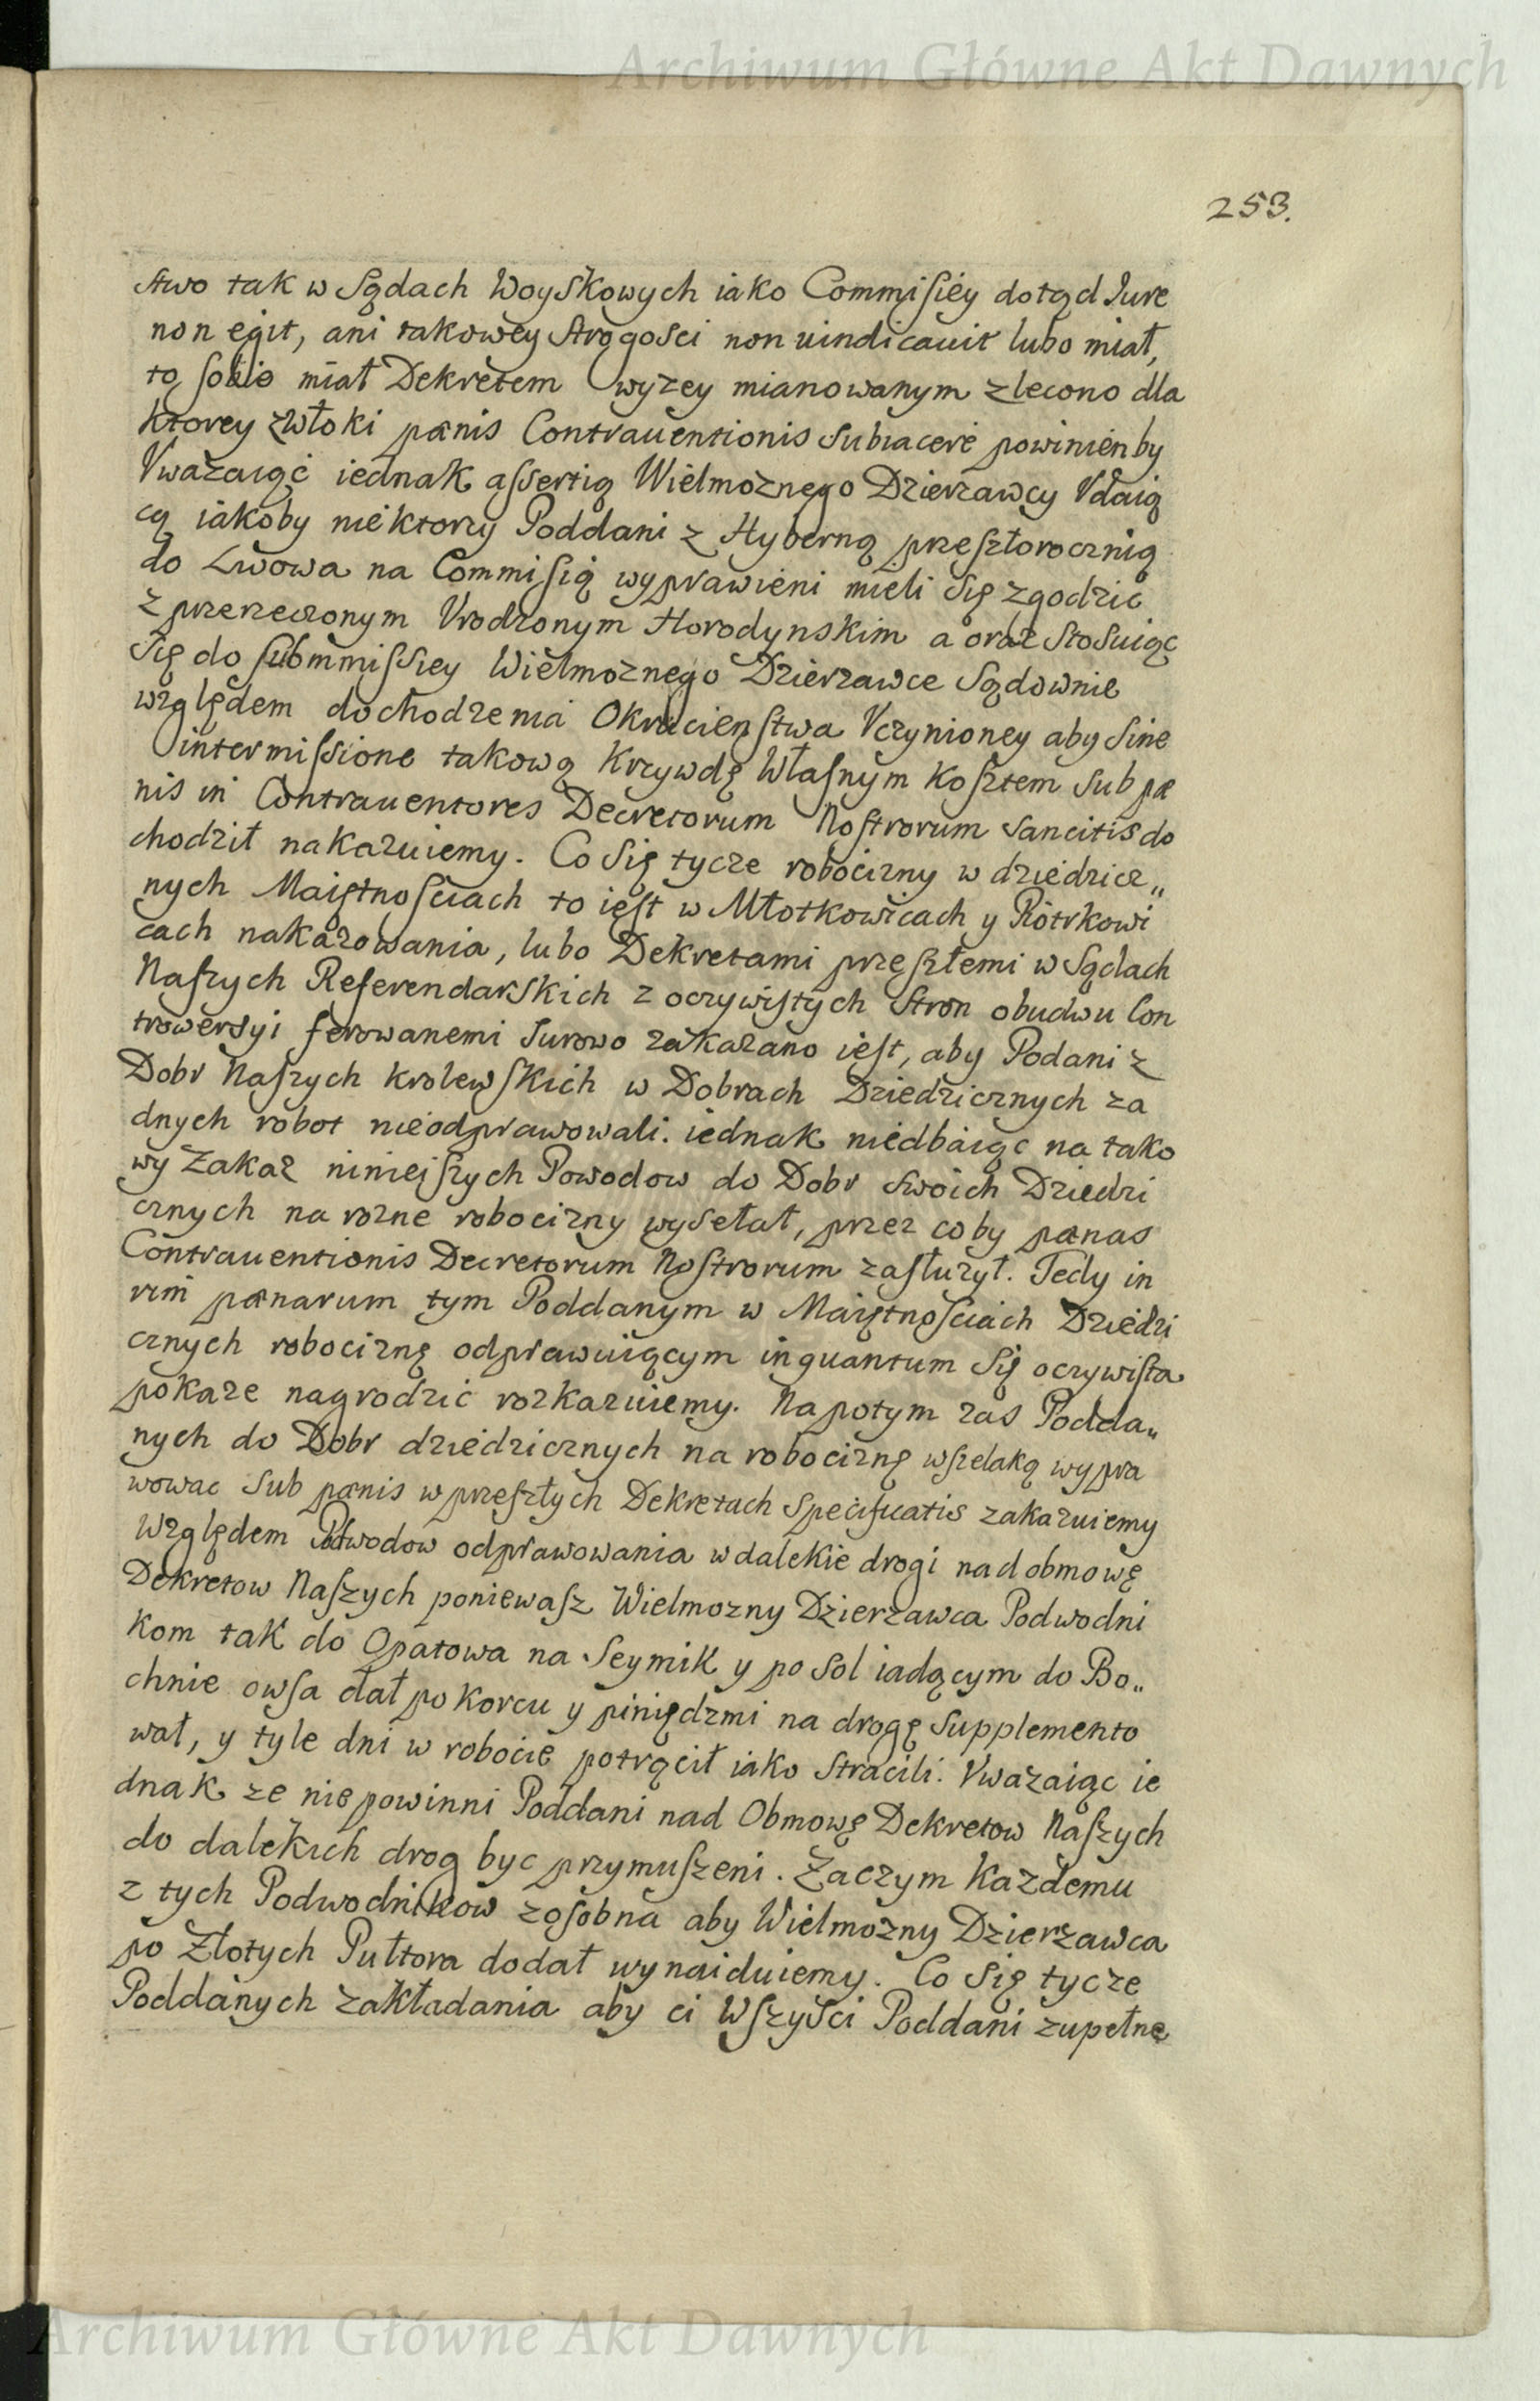 Archiwum Główne Akt Dawnych
253.
stwo tak w Sądach Woyskowych iako Commisiey dotąd Iure
non egit, ani takowey srogosci non uindicauit lubo miał,
to sobie miał Dekretem wyzey mianowanym zlecono dla
ktorey zwłoki pænis Contrauentionis subiacere powinien by
Vwazaiąc iednak assertią Wielmoznego Dzierzawcy Vdaią
cą iakoby niektorzy Poddani z Hyberną przeszłorocznią
do Lwowa na Commisią wyprawieni mieli się zgodzic
z przerzeczonym Vrodzonym Horodynskim a oraz stosuiąc
się do submmissiey Wielmoznego Dzierzawce Sądownie
względem dochodzenia Okrucienstwa Vczynioney aby sine
intermissione takową Krzywdę Własnym Kosztem sub pæ
nis in Contrauentores Decretorum Nostrorum sancitis do
chodził nakazuiemy. Co się tycze robocizny w dziedzicz„
nych Maiętnosciach to iest w Młotkowicach y Piotrkowi
cach nakazowania, lubo Dekretami przeszłemi w Sądach
Naszych Referendarskich z oczywistych stron obudwu Con
trowersyi ferowanemi surowo zakazano iest, aby Podani z
Dobr Naszych krolewskich w Dobrach Dziedzicznych za
dnych robot nieodprawowali. iednak niedbaiąc na tako
wy Zakaz ninieiszych Powodow do Dobr swoich Dziedzi
cznych na rozne robocizny wysełał, przez co by pænas
Contrauentionis Decretorum Nostrorum zasłuzył. Tedy in
vim pænarum tym Poddanym w Maiętnosciach Dziedzi
cznych robociznę odprawuiącym inquantum się oczywista
pokaze nagrodzić rozkazuiemy. Na potym zas Podda„
nych do Dobr dziedzicznych na robociznę wszelaką wypra
wowac sub pænis w przeszłych Dekretach specificatis zakazuiemy
Względem Podwodow odprawowania w dalekie drogi nad obmowę
Dekretow Naszych poniewasz Wielmozny Dzierzawca Podwodni
kom tak do Opatowa na Seymik y po sol iadącym do Bo„
chnie owsa dał po korcu y piniędzmi na drogę supplemento
wał, y tyle dni w robocie potrącił iako stracili. Vwazaiąc ie
dnak ze niepowinni Poddani nad Obmowę Dekretow Naszych
do dalekich drog byc przymuszeni. Zaczym Kazdemu
z tych Podwodnikow zosobna aby Wielmozny Dzierzawca
po Złotych Pułtora dodał wynaiduiemy. Co się tycze
Poddanych zakładania aby ci Wszysci Poddani zupełne
Archiwum Główne Akt Dawnych